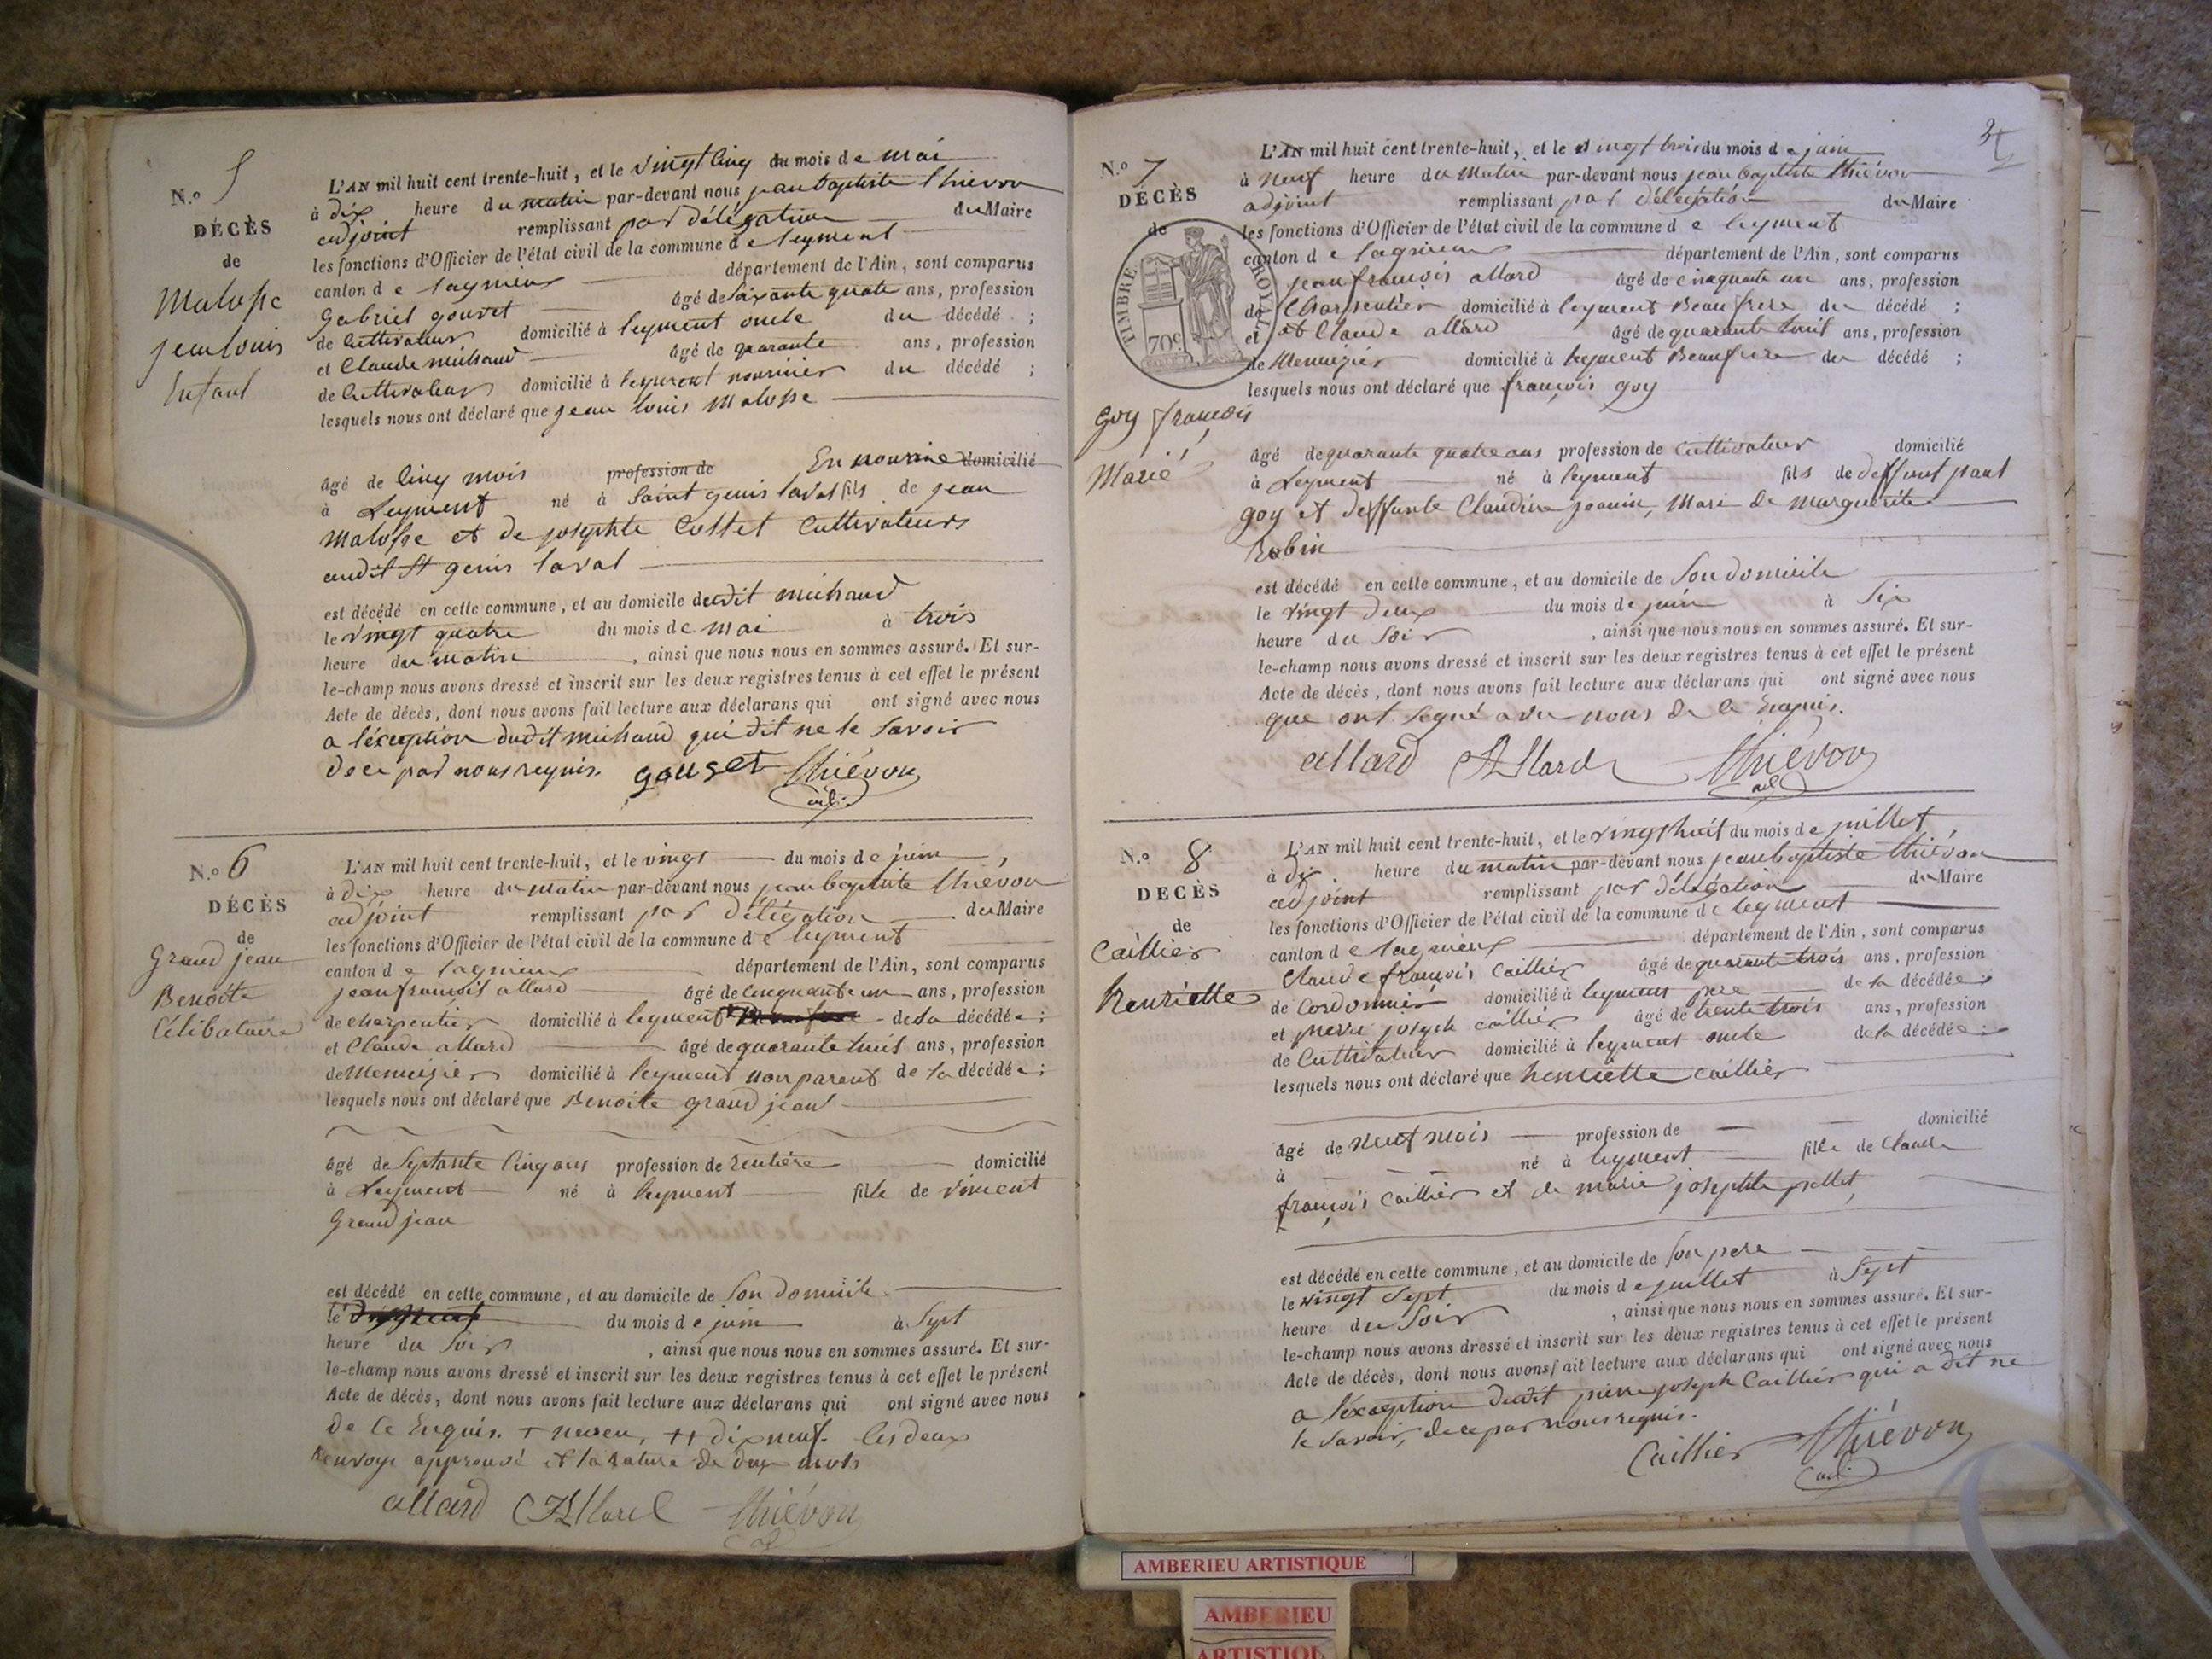 N.o 5
DÉCÈS
de
Malosse
jean louis
Enfant
L'AN mil huit cent trente-huit, et le vingt cinq du mois de mai
à dix heure du matin par-devant nous jean baptiste thiévon
adjoint remplissant par délégation du Maire
les fonctions d'Officier de l'état civil de la commune de leyment
canton de lagnieux département de l'Ain, sont comparus
Gabriel gouset âgé de soixante quatre ans, profession
de Cultivateur domicilié à leyment oncle du décédé ;
et Claude michaud âgé de quarante ans, profession
de Cultivateur domicilié à leyment nourricier du décédé ;
lesquels nous ont déclaré que jean louis Malosse
âgé de cinq mois profession de En nourrice domicilié
à Leyment né à Saint genis laval fils de jean
Malosse et de josephte Collet Cultivateurs
audit St genis laval
est décédé en cette commune, et au domicile dudit michaud
le vingt quatre du mois de mai à trois
heure du matin , ainsi que nous nous en sommes assuré. Et sur-
le-champ nous avons dressé et inscrit sur les deux registres tenus à cet effet le présent
Acte de décès, dont nous avons fait lecture aux déclarans qui ont signé avec nous
a l'éxception dudit michaud qui dit ne le savoir
de ce par nous requis. gouset thiévon
adj.
N.o 6
DÉCÈS
de
Grand jean
Benoite
Célibataire
L'AN mil huit cent trente-huit, et le vingt du mois de juin,
à dix heure du matin par-devant nous jean baptiste thiévon
adjoint remplissant par délégation du Maire
les fonctions d'Officier de l'état civil de la commune de leyment
canton de lagnieux département de l'Ain, sont comparus
jean francois allard âgé de cinquante un ans, profession
de charpentier domicilié à leyment de la décédée ;
et Claude allard âgé de quarante huit ans, profession
de Menuizier domicilié à leyment non parent de la décédée ;
lesquels nous ont déclaré que Benoite grand jean
âgé de Septante Cinq ans profession de rentière domicilié
à Leyment né à leyment fille de vincent
Grand jean
est décédé en cette commune, et au domicile de son domicile
le du mois de juin à Sept
heure du Soir , ainsi que nous nous en sommes assuré. Et sur-
le-champ nous avons dressé et inscrit sur les deux registres tenus à cet effet le présent
Acte de décès, dont nous avons fait lecture aux déclarans qui ont signé avec nous
de ce Enquis. + neveu, ++ dix neuf. les deux
Renvoye approuvé et la rature de deux mots
allard Allard thiévon
N.o 7
DÉCÈS
de
TIMBRE ROYAL
70c
goy françois
Marié
L'AN mil huit cent trente-huit, et le vingt trois du mois de juin
à neuf heure du matin par-devant nous jean baptiste thiévon
adjoint remplissant par délégation du Maire
les fonctions d'Officier de l'état civil de la commune de leyment
canton de lagnieux département de l'Ain, sont comparus
jean françois allard âgé de cinquante un ans, profession
de Charpentier domicilié à leyment Beau frere du décédé ;
et Claude allard âgé de quarante huit ans, profession
de Menuizier domicilié à leyment Beaufrere du décédé ;
lesquels nous ont déclaré que françois goy
âgé de quarante quatre ans profession de Cultivateur domicilié
à Leyment né à leyment fils de deffunt paul
goy et deffunte Claudine jeanin, Mari de Marguerite
Robin
est décédé en cette commune, et au domicile de Son domicile
le vingt deux du mois de juin à Six
heure du Soir , ainsi que nous nous en sommes assuré. Et sur-
le-champ nous avons dressé et inscrit sur les deux registres tenus à cet effet le présent
Acte de décès, dont nous avons fait lecture aux déclarans qui ont signé avec nous
que ont signé avec nous de ce Enquis.
allard Allard thiévon
adj
N.o 8
DECÈS
de
Caillier
henriette
L'AN mil huit cent trente-huit, et le vingt huit du mois de juillet
à dix heure du matin par-devant nous jean baptiste thiévon
adjoint remplissant par délégation du Maire
les fonctions d'Officier de l'état civil de la commune de leyment
canton de lagnieux département de l'Ain, sont comparus
Claude françois Caillier âgé de quarante trois ans, profession
de Cordonnier domicilié à leyment pere de la décédée ;
et pierre joseph caillier âgé de trente trois ans, profession
de Cultivateur domicilié à leyment oncle de la décédée ;
lesquels nous ont déclaré que henriette caillier
âgé de neuf mois profession de domicilié
à né à leyment fille de Claude
françois Caillier et de marie josephte pellet,
est décédé en cette commune, et au domicile de son pere
le vingt Sept du mois de juillet à Sept
heure du Soir , ainsi que nous nous en sommes assuré. Et sur-
le-champ nous avons dressé et inscrit sur les deux registres tenus à cet effet le présent
Acte de décès, dont nous avons fait lecture aux déclarans qui ont signé avec nous
a l'éxception dudit pierre joseph Caillier qui a dit ne
le savoir, de ce par nous requis.
Caillier thiévon
adj.
AMBERIEU ARTISTIQUE
AMBERIEU
ARTISTIQUE